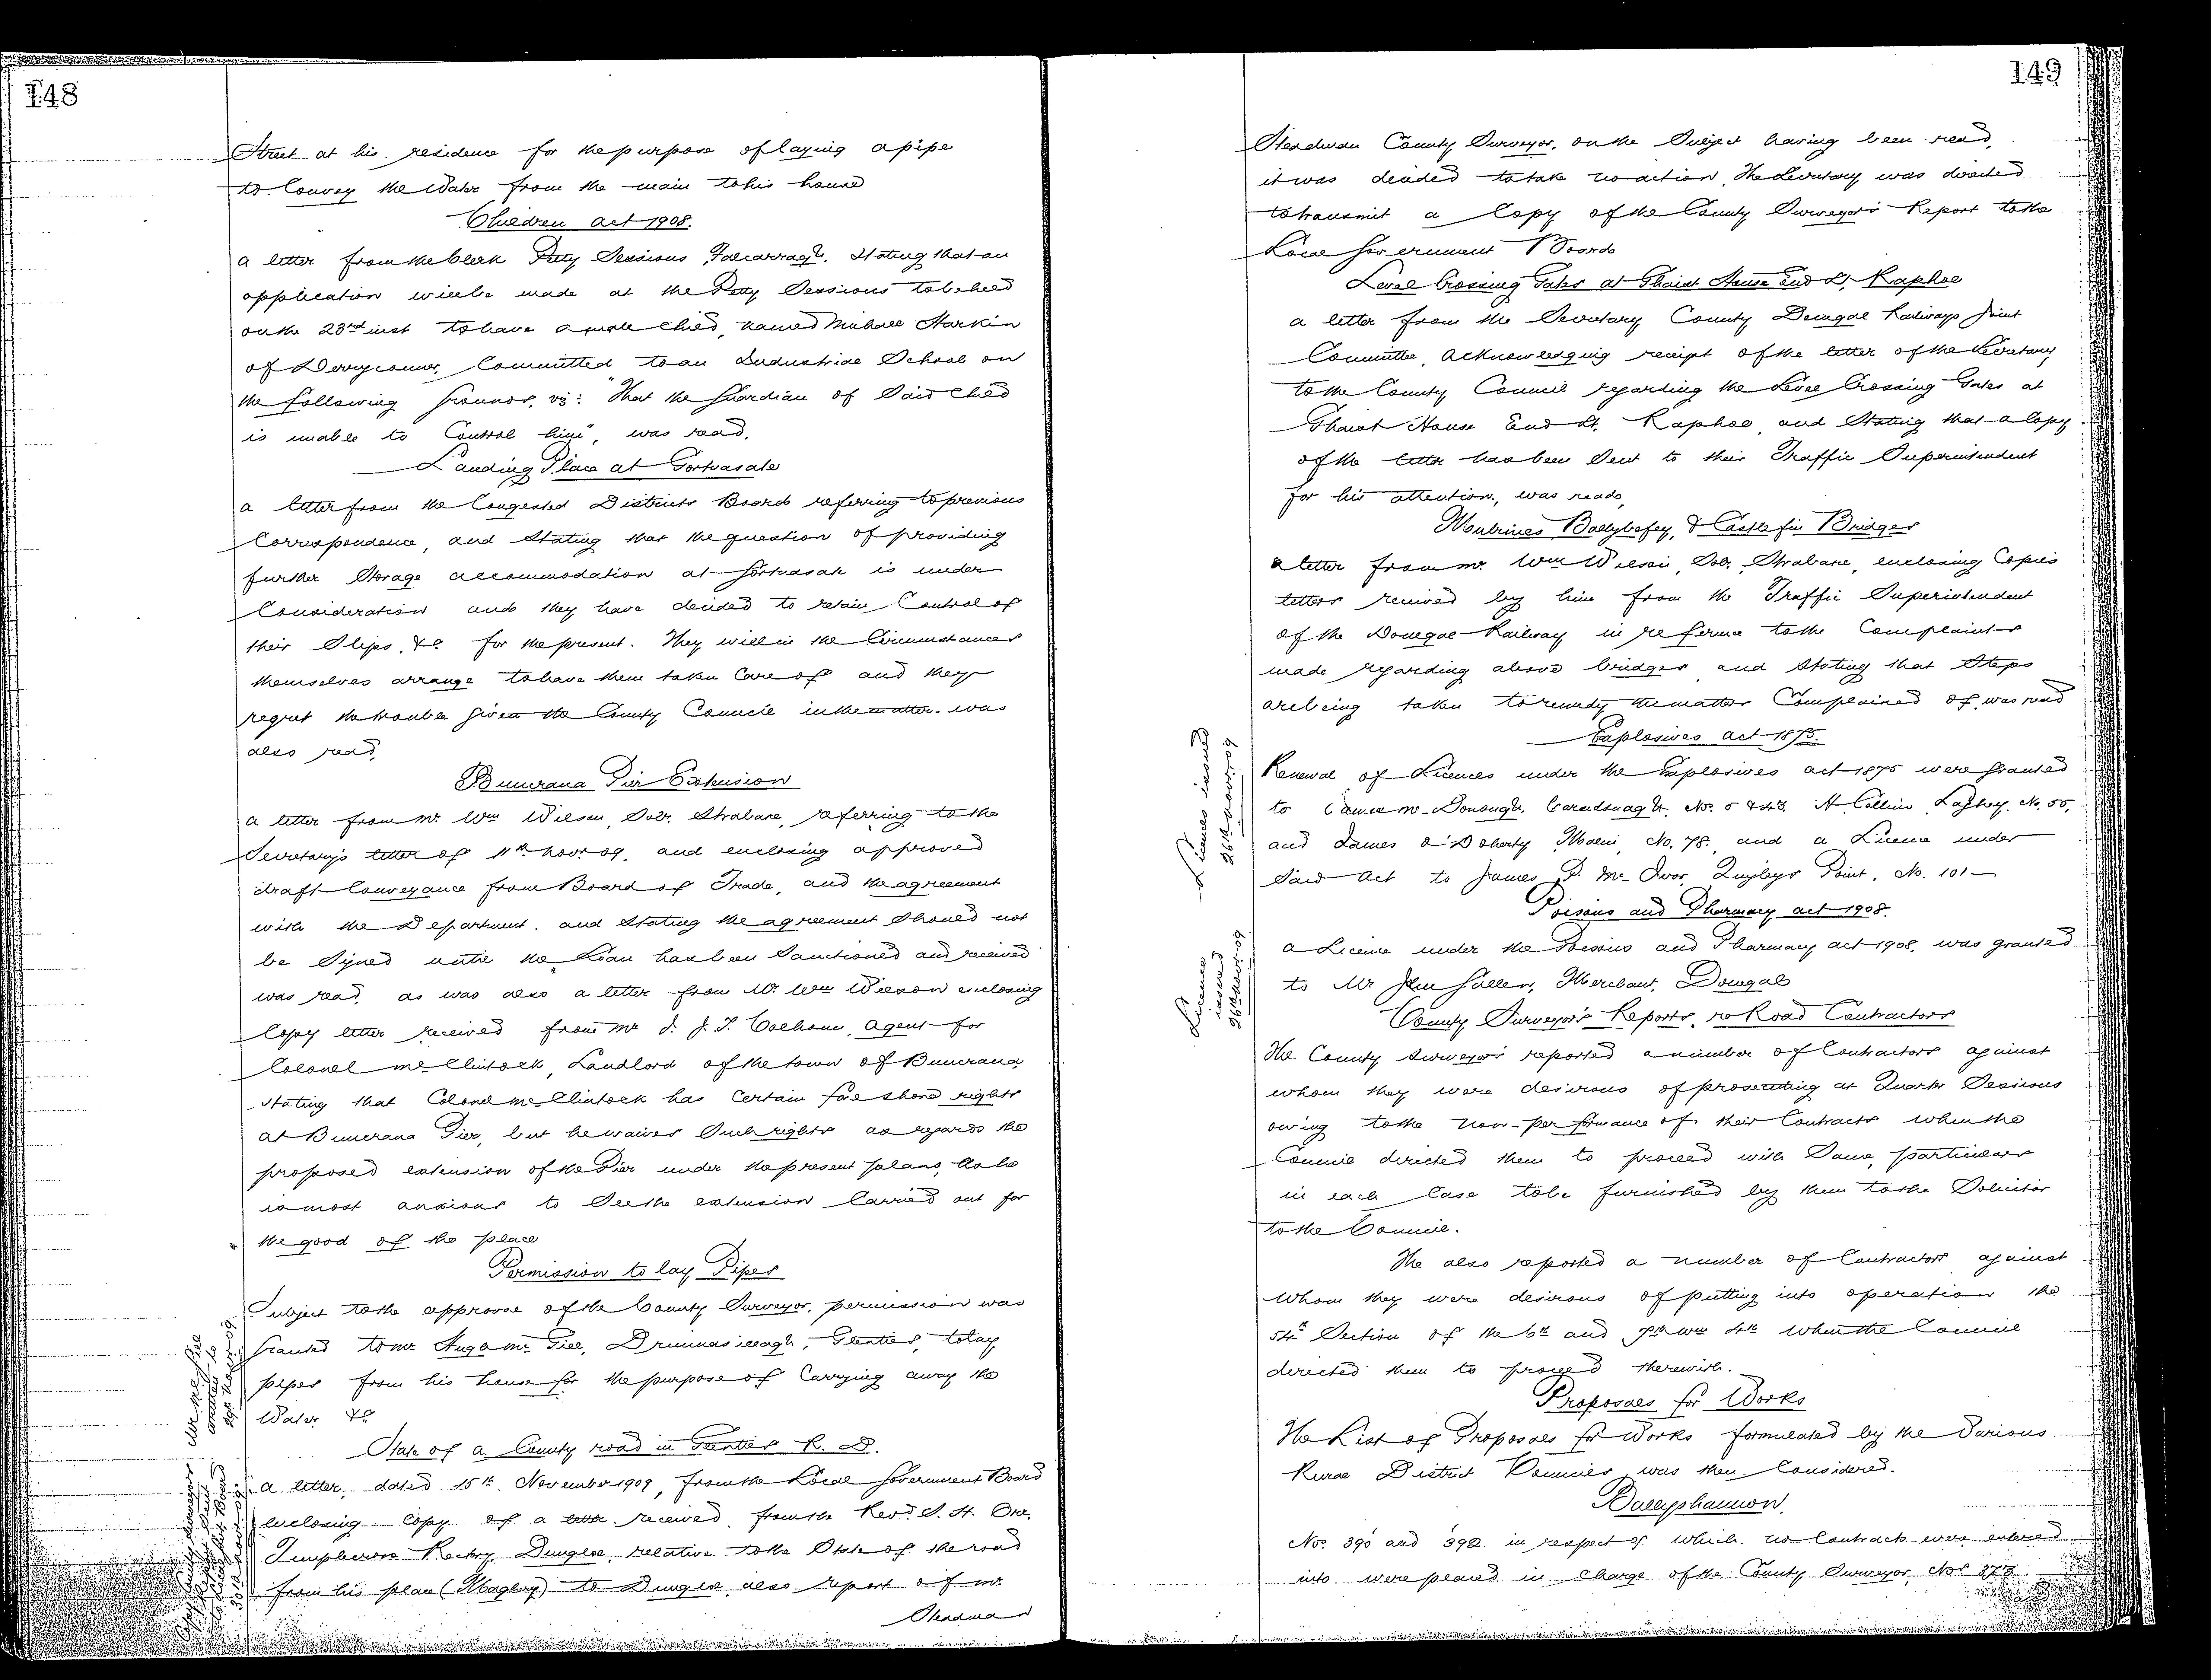 148
Street at his residence for the purpose of laying a pipe
to Convey the Water from the main to his house
Children Act 1908.
A letter from the Clerk Petty Sessions, Falcarragh, Stating that an
application will be made at the Petty Sessions to be held
on the 23rd inst to have a male child, named Michael Harkin
of Committed to an Industrial School on
the following grounds, viz: "That the Guardian of Said Child
is unable to Control him", was read.
Landing Place at Gortnasate
A letter from the Congested Districts Board referring to previous
Correspondence, and Stating that the question of providing
further Storage accommodation at Gortnasate is under
Consideration and they have decided to retain Control of
their Slips, &c for the present. They will in the Circumstances
themselves arrange to have them taken Care of and they
regret the trouble given the County Council in the matter was
also read.
Buncrana Pier Extension
A letter from Mr. Wm Wilson, Solr. Strabane, referring to the
Secretary's letter of 11th Novr. 09, and enclosing approved
draft Conveyance from Board of Trade, and the agreement
with the Department, and Stating the agreement Should not
be Signed until the Loan has been Sanctioned and received
was read, as was also a letter from Mr. Wm Wilson enclosing
Copy letter received from Mr J. J. T. Colhoun, Agent for
Colonel McClintock, Landlord of the town of Buncrana,
Stating that Colonel McClintock has Certain fore shore rights
at Buncrana Pier, but he waives Such rights as regards the
proposed extension of the Pier under the present plans, as he
is most anxious to See the extension Carried out for
the good of the place
Permission to lay Pipes
Subject to the approval of the County Surveyor, permission was
granted to Mr. Hugh McGill, Drimnasillagh, Glenties, to lay
pipes from his house for the purpose of Carrying away the
Water &c
State of a County road in Glenties R. D.
A letter, dated 15th November 1909, from the Local Government Board
enclosing Copy of a letter received from the Revd. S. H. Orr,
Templecrone Rectory, Dungloe, relative to the State of the road
from his place (Maghery) to Dungloe also report of Mr.
Steadman
149
Steadman County Surveyor, on the Subject having been read,
it was decided to take no action. The Secretary was directed
to transmit a Copy of the County Surveyor's Report to the
Local Government Board
Level Crossing Gates at Ghaist House End Lr. Raphoe
A letter from the Secretary County Donegal Railways Joint
Committee, acknowledging receipt of the letter of the Secretary
to the County Council regarding the Level Crossing Gates at
Ghaist House End Lr. Raphoe, and Stating that a Copy
of the letter has been Sent to their Traffic Superintendent
for his attention, was read.
Mulrines Ballybofey, & Castlefin Bridges
A letter from Mr. Wm Wilson, Solr. Strabane, enclosing Copies
letters received by him from the Traffic Superintendent
of the Donegal Railway in reference to the Complaints
made regarding above bridges and Stating that Steps
are being taken to remedy the matter Complained of was read
Explosives Act 1875.
Licences issued
26th Novr. 09
Renewal of Licences under the Explosives Act 1875 were granted
to James McDonough, Carndonagh, No. 5 & 43. Collin, Laghey, No. 55,
and James O'Doherty, Malin, No. 78, and a Licence under
Said Act to James P. McIvor, Quigleys Point, No. 101
Poisons and Pharmacy Act 1908.
Licence
issued
26th Novr 09
A Licence under the Poisons and Pharmacy Act 1908, was granted
to Mr John Gallen, Merchant, Donegal
County Surveyor's Reports, re Road Contractors
The County Surveyors reported a number of Contractors against
whom they were desirous of prosecuting at Quarter Sessions
owing to the non-performance of their Contracts when the
Council directed them to proceed with Same, particulars
in each Case to be furnished by them to the Solicitor
to the Council.
He also reported a number of Contractors against
Whom they were desirous of putting into operation the
54th Section of the 6th and 7th Wm 4th when the Council
directed them to proceed therewith.
Proposals for Works
The List of Proposals for Works formulated by the Various
Rural District Councils was then Considered.
Ballyshannon
Nos. 390 and 392 in respect of which no Contracts were entered
into were placed in Charge of the County Surveyor, Nos 273
and